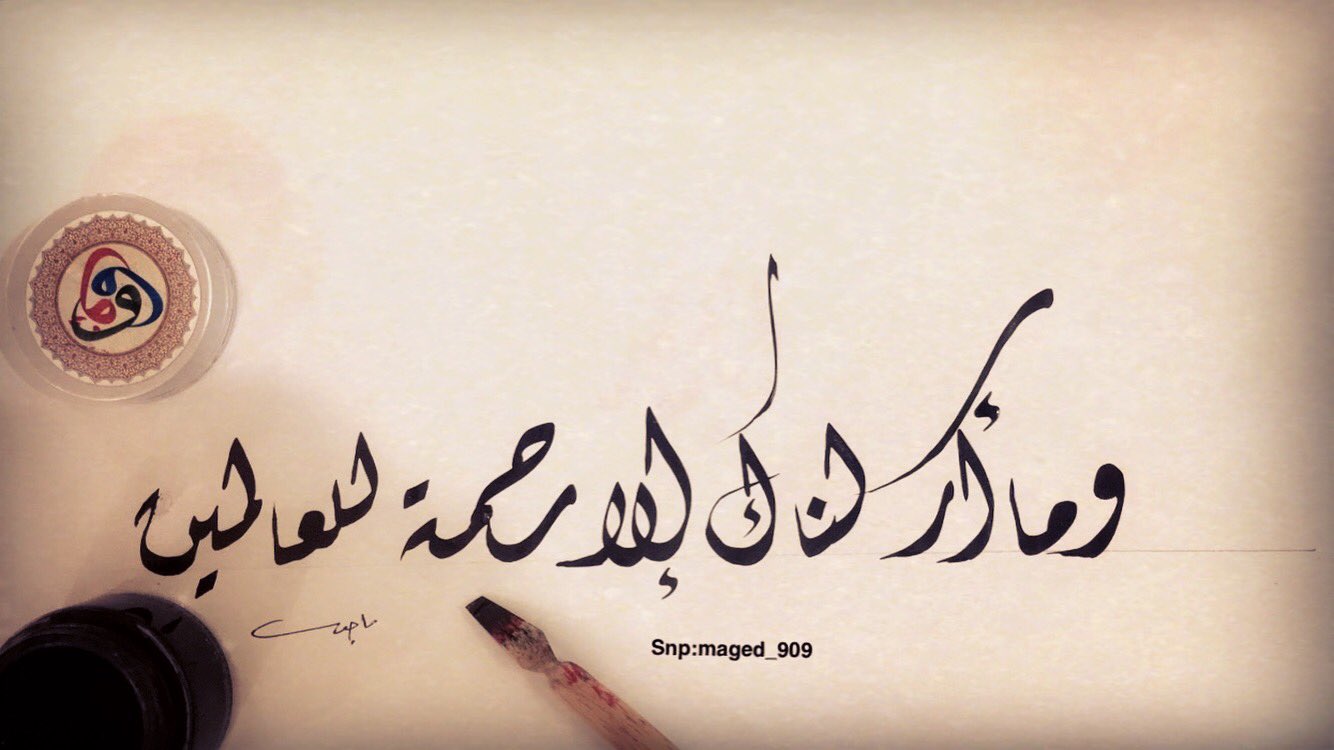 وما أرسلناك إلا رحمة للعالمين
ماجد
Snp:maged_909